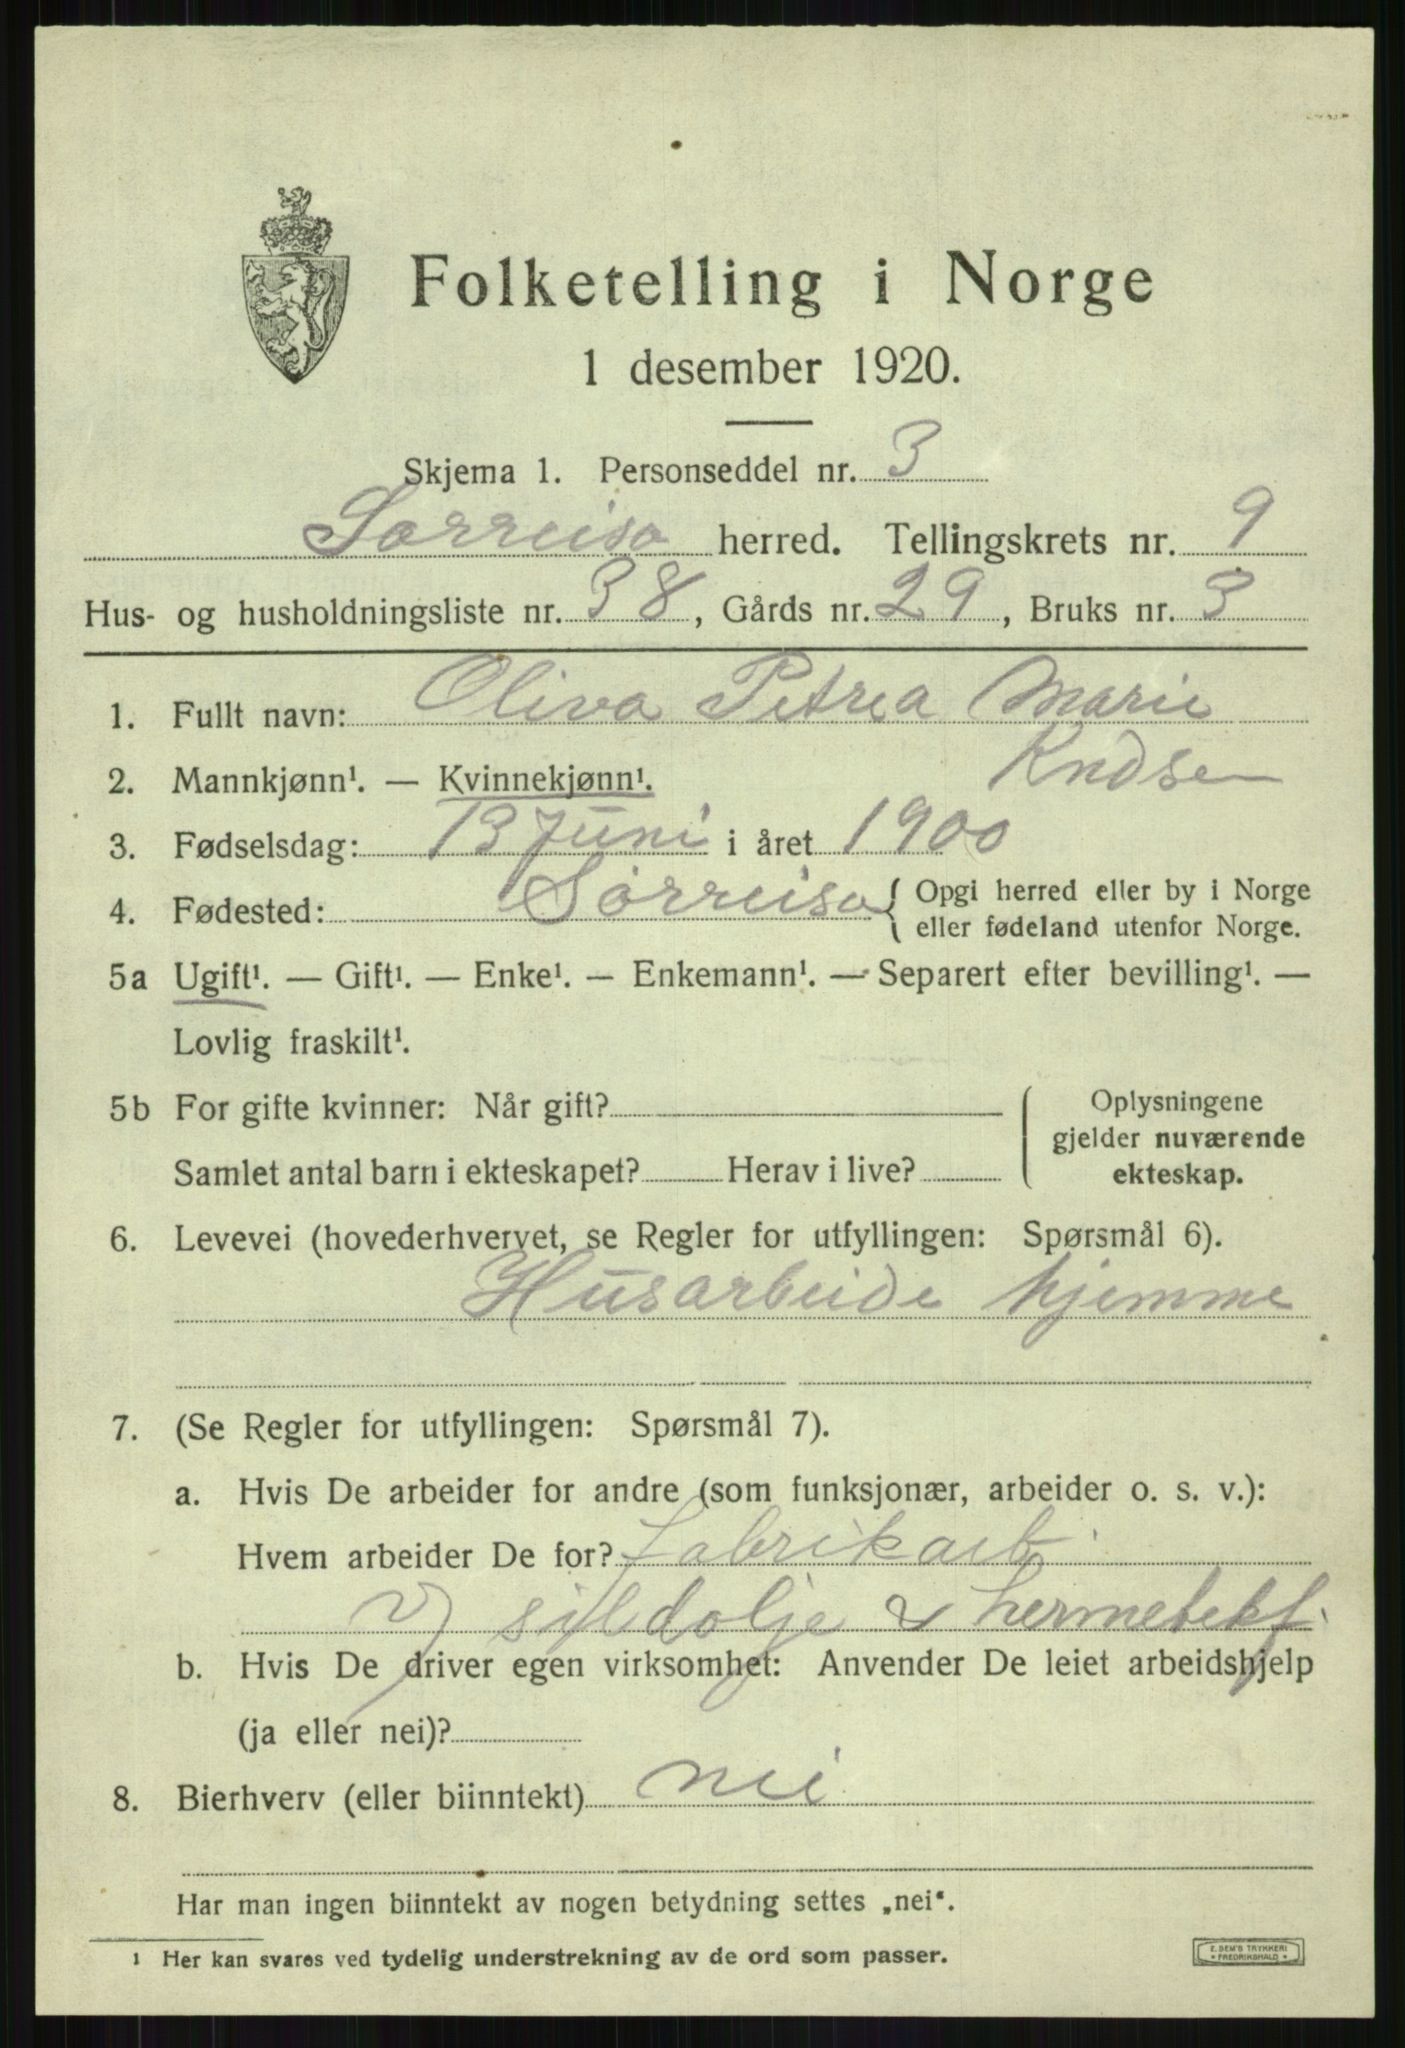 Folketelling i Norge
1 desember 1920.
Skjema 1. Personseddel nr. 3
Sørreisa herred. Tellingskrets nr. 9
Hus- og husholdningsliste nr. 38, Gårds nr. 29, Bruks nr. 3
1. Fullt navn: Oliva Petrea Marie
Kndsen
2. Mannkjønn¹. — Kvinnekjønn¹.
3. Fødselsdag: 13 Juni i året 1900
4. Fødested: Sørreisa { Opgi herred eller by i Norge
eller fødeland utenfor Norge.
5a Ugift¹. — Gift¹. — Enke¹. — Enkemann¹. — Separert efter bevilling¹. —
Lovlig fraskilt¹.
5b For gifte kvinner: Når gift?
Samlet antal barn i ekteskapet? Herav i live?
Oplysningene
gjelder nuværende
ekteskap.
6. Levevei (hovederhvervet, se Regler for utfyllingen: Spørsmål 6).
Husarbeide hjemme
7. (Se Regler for utfyllingen: Spørsmål 7).
a. Hvis De arbeider for andre (som funksjonær, arbeider o. s. v.):
Hvem arbeider De for? fabrikarb.
v/ sildolje & hermetikf.
b. Hvis De driver egen virksomhet: Anvender De leiet arbeidshjelp
(ja eller nei)?
8. Bierhverv (eller biinntekt) nei
Har man ingen biinntekt av nogen betydning settes „nei“.
¹ Her kan svares ved tydelig understrekning av de ord som passer.
E. SEM'S TRYKKERI
* FREDRIKSHALD *